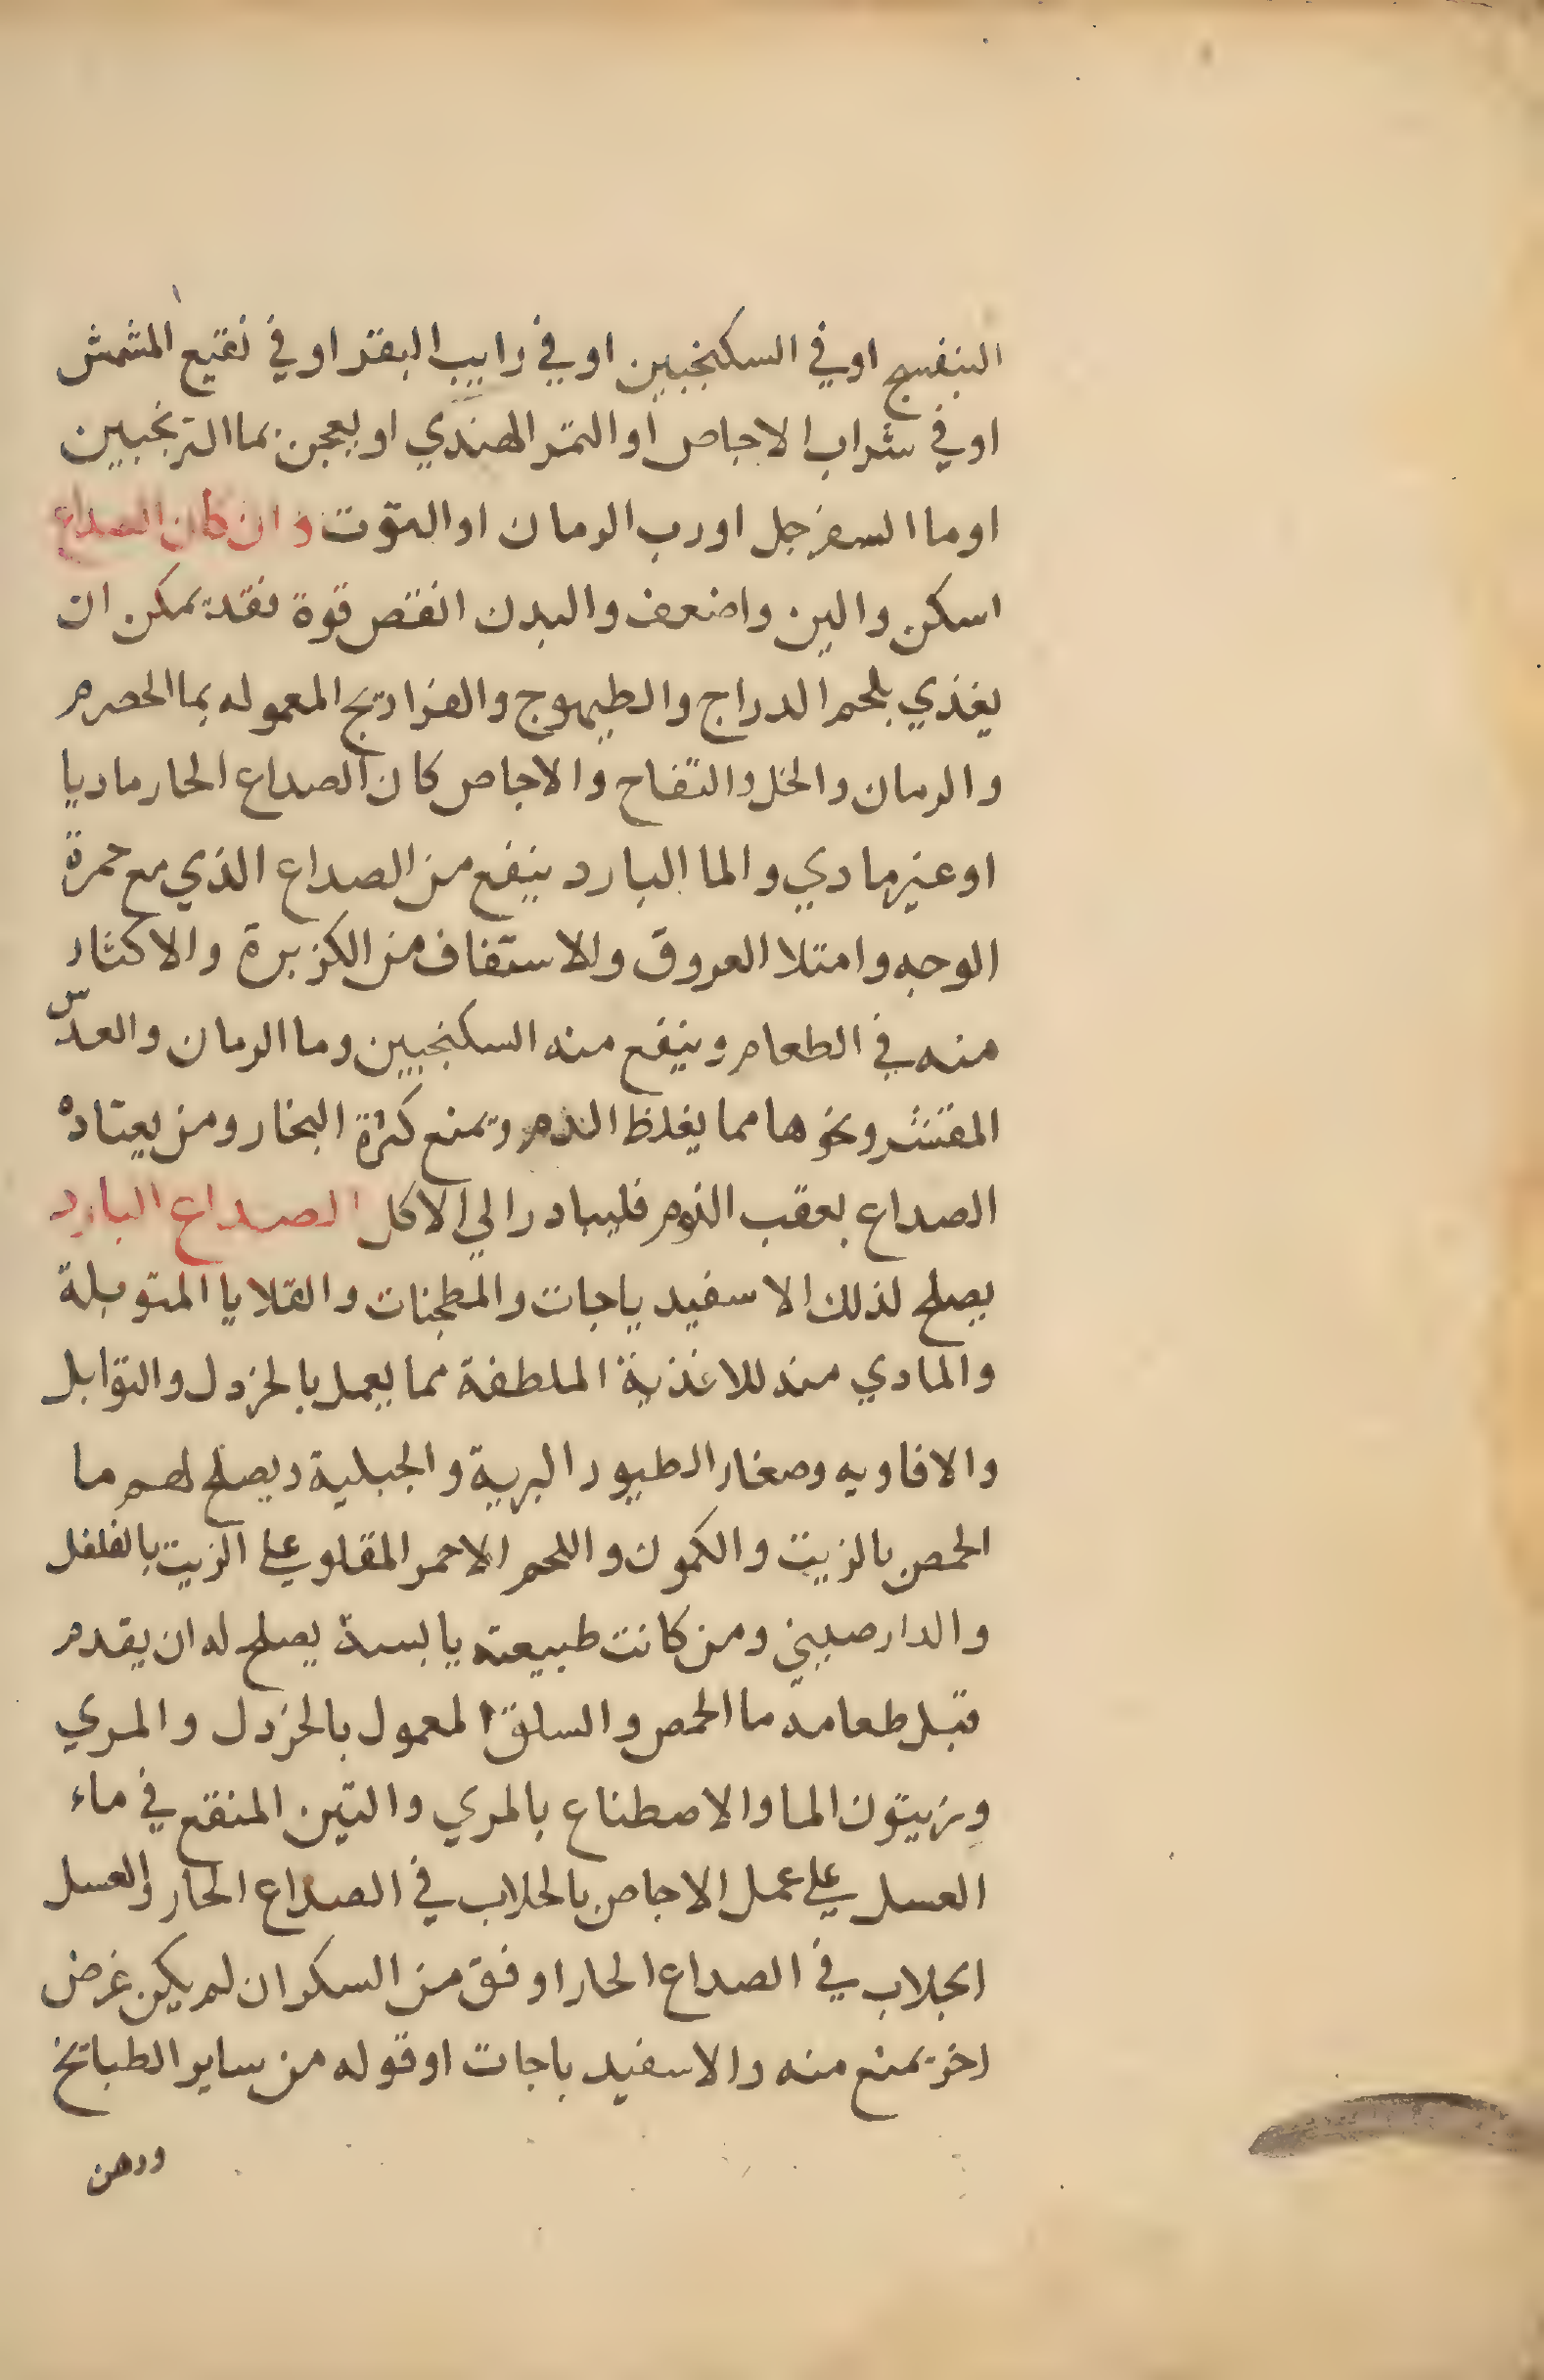 البنفسج اوفي السكنجبين اوفي رايب البقر اوفي نقيع المشمش
اوفي شراب الاجاص او التمر الهندي او يعجن بما الترنجبين
اوما السفرجل اورب الرمان او التوت وان كان الصداع
اسكن والين واضعف والبدن انقص قوة فقد يمكن ان
يغذي بلحم الدراج والطيهوج والفراريج المعموله بما الحصرم
والرمان والخل والتفاح والاجاص كان الصداع الحار ماديا
اوغير مادي والما البارد ينفع من الصداع الذي مع حمرة
الوجه وامتلا العروق والاستفاف من الكزبرة والاكثار
منه في الطعام وينفع منه السكنجبين وما الرمان والعدس
المقشر ونحوها مما يغلظ الدم ويمنع كثرة البخار ومن يعتاده
الصداع بعقب النوم فليبادر الي الاكل الصداع البارد
يصلح لذلك الاسفيد ياجات والمطجنات والقلايا المتوبلة
والمادي منه للاغذية الملطفة مما يعمل بالخردل والتوابل
والافاويه وصغار الطيور البرية والجبلية ويصلح لهم ما
الحمص بالزيت والكمون واللحم الاحمر المقلو علي الزيت بالفلفل
والدارصيني ومن كانت طبيعته يابسة يصلح له ان يقدم
قبل طعامه ما الحمص والسلق المعمول بالخردل والمري
وزيتون الما والاصطناع بالمري والتين المنقع في ماء
العسل علي عمل الاجاص بالجلاب في الصداع الحار والعسل
الجلاب في الصداع الحار اوفق من السكر ان لم يكن غرض
اخر يمنع منه والاسفيد باجات اوقوله من ساير الطبايخ
ودهن